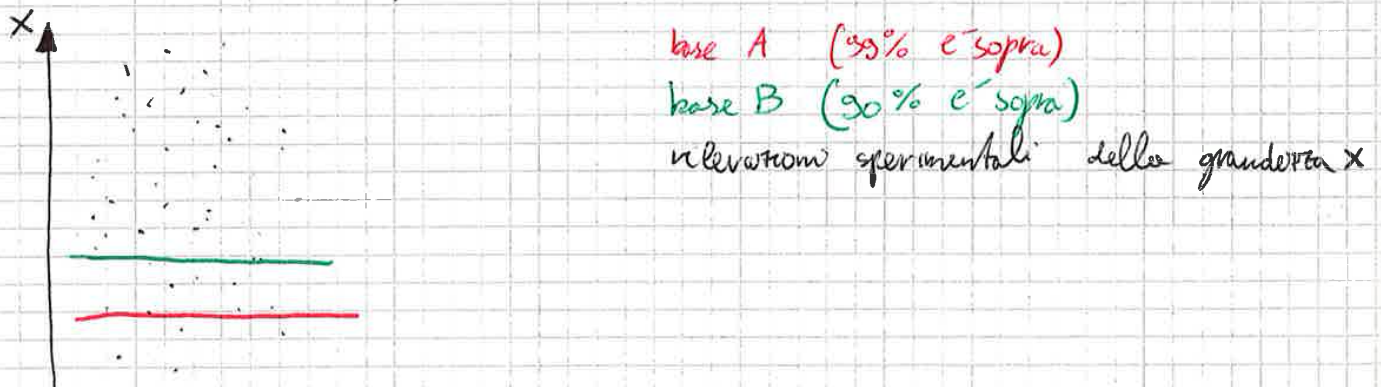 X
base A (99% e´ sopra)
base B (90% e´ sopra)
rilevazioni sperimentali della grandezza x